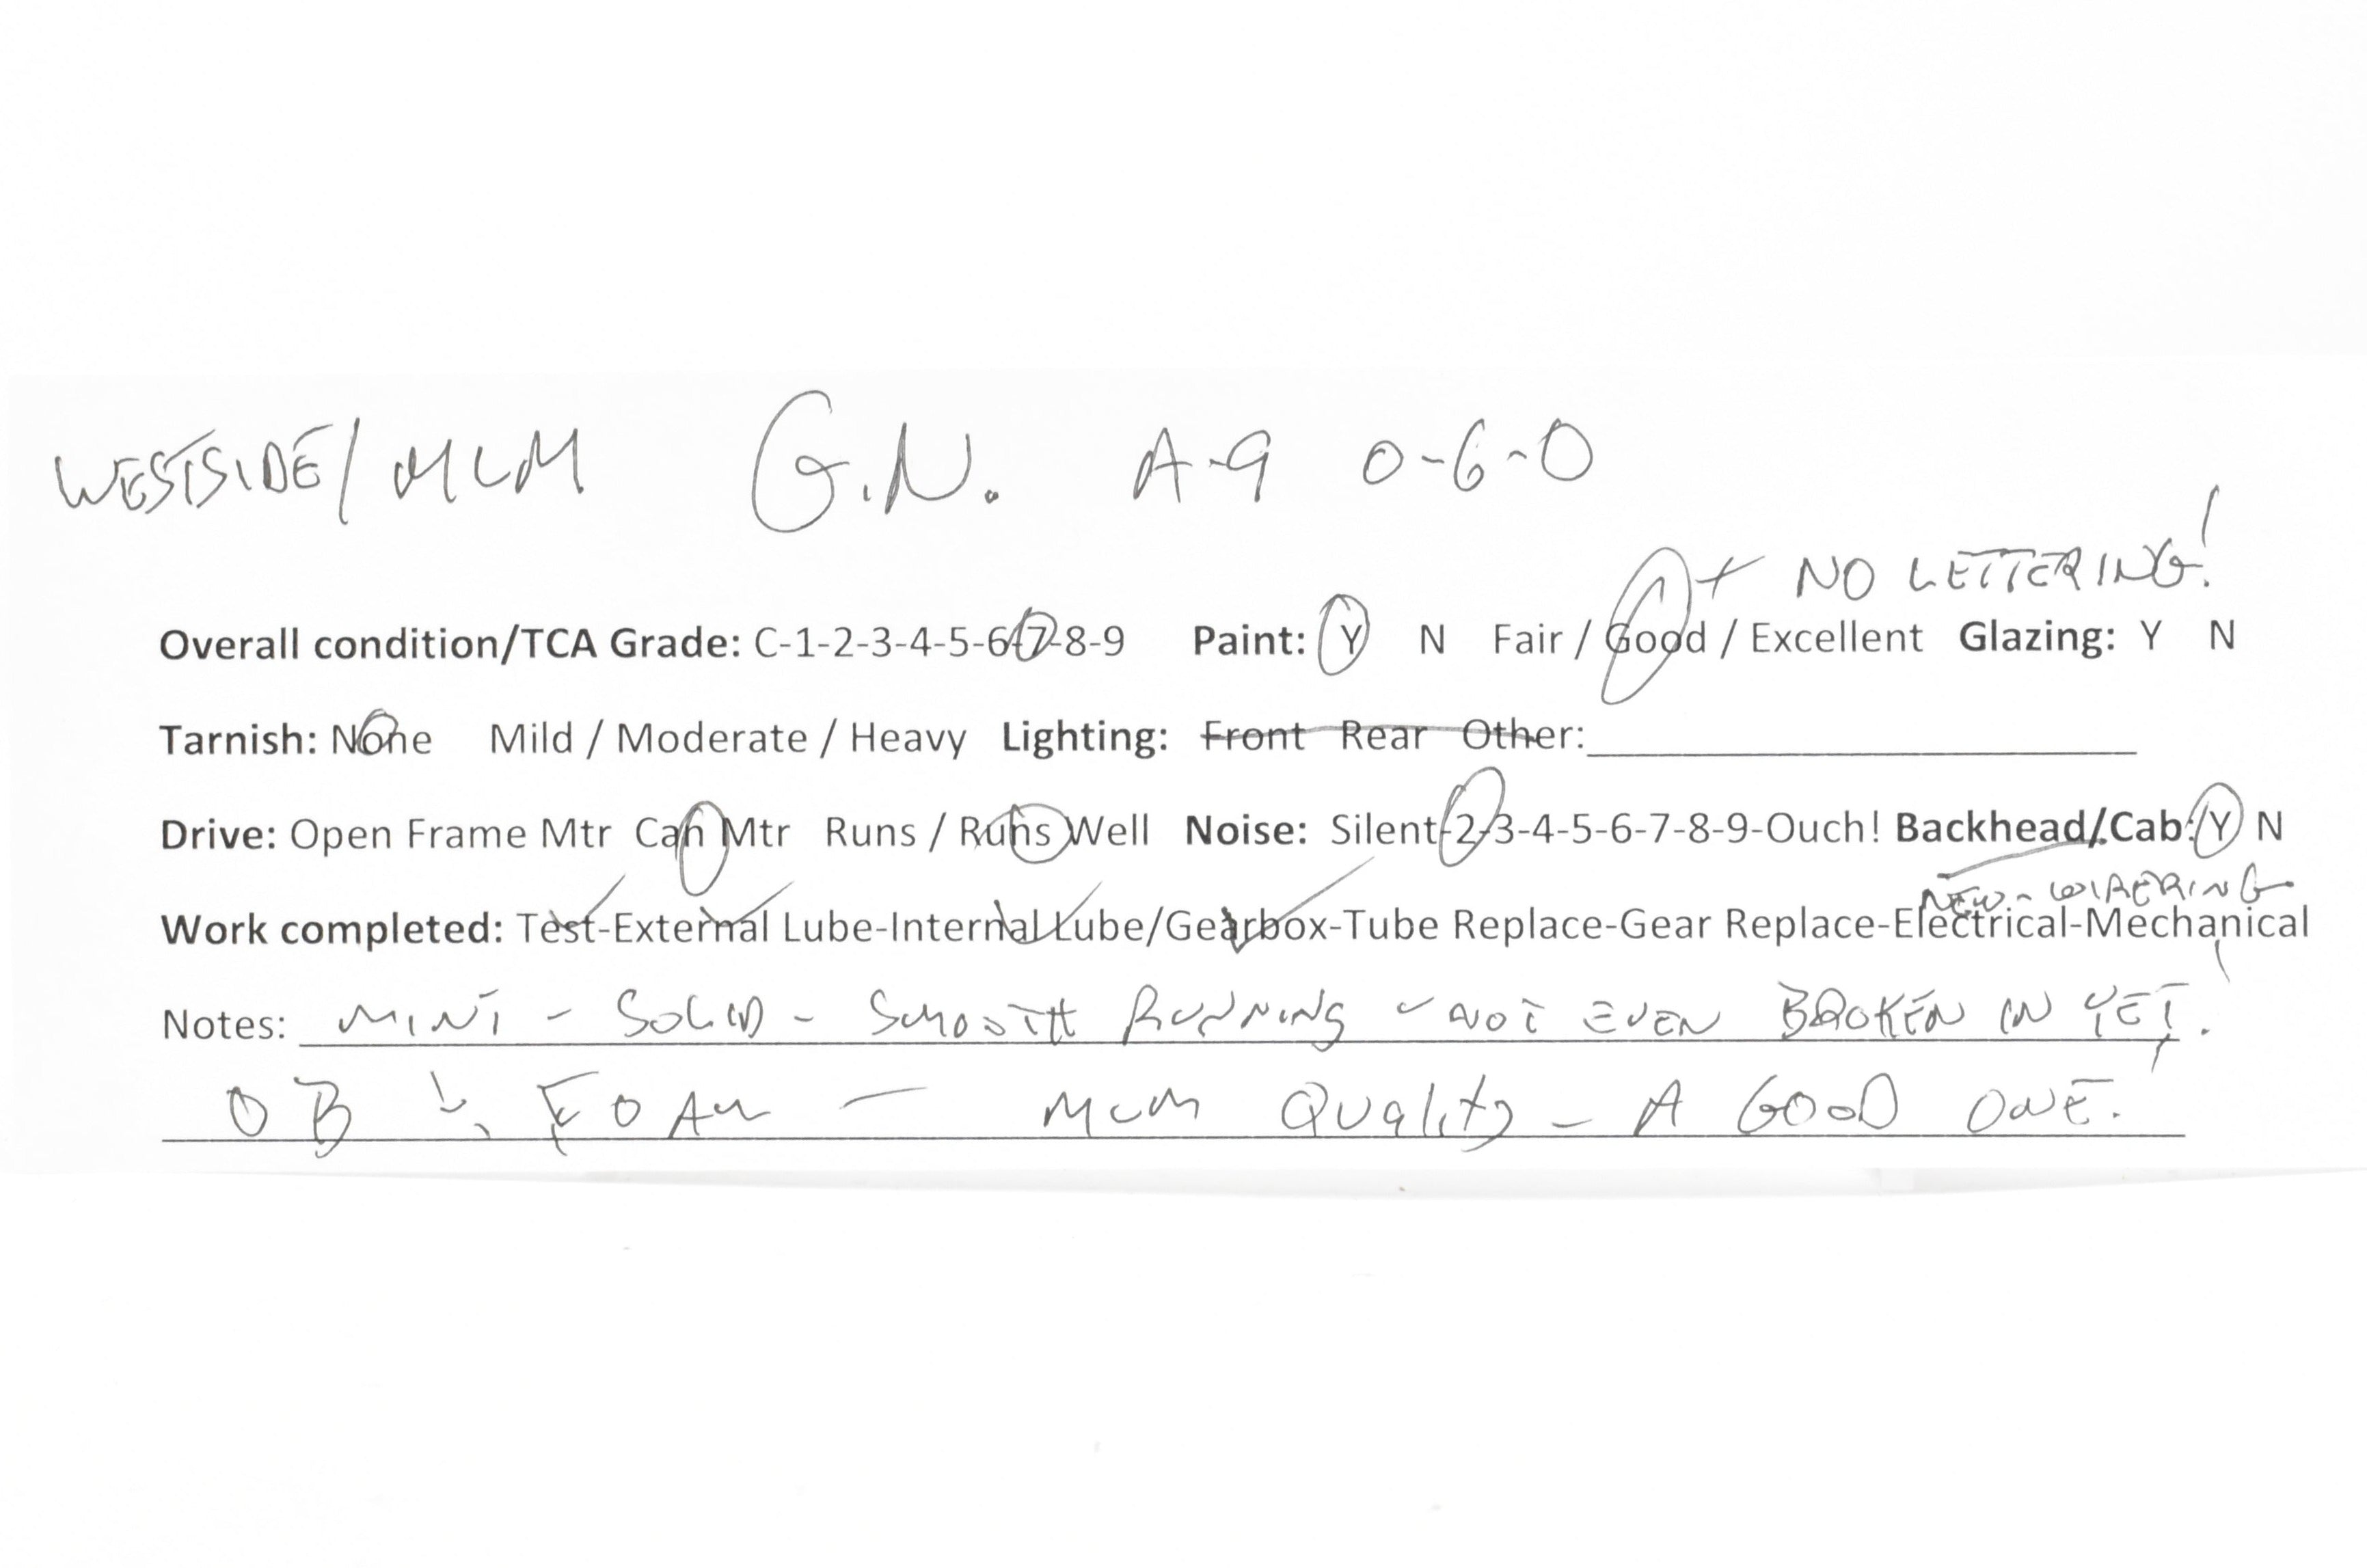 WESTSIDE/MLM G.N. A-9 0-6-0
+ NO LETTERING!
Overall condition/TCA Grade: C-1-2-3-4-5-6-7-8-9 Paint: Y N Fair / Good / Excellent Glazing: Y N
Tarnish: None Mild / Moderate / Heavy Lighting: Front Rear Other:
Drive: Open Frame Mtr Can Mtr Runs / Runs Well Noise: Silent-2-3-4-5-6-7-8-9-Ouch! Backhead/Cab: Y N
NEW - WIRERING
Work completed: Test-External Lube-Internal Lube/Gearbox-Tube Replace-Gear Replace-Electrical-Mechanical
Notes: MINT - SOLID - SMOOTH RUNNING - NOT EVEN BROKEN IN YET!
OB & FOAM - MLM Quality - A GOOD ONE!